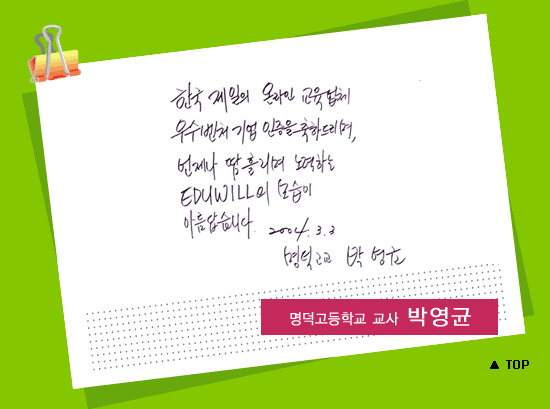 한국 제일의 온라인 교육업체
우수벤처기업 인증을 축하드리며,
언제나 땀흘리며 노력하는
EDUWILL의 모습이
아름답습니다. 2004. 3. 3
명덕고교 박영균
명덕고등학교 교사 박영균
▲ TOP